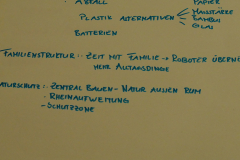 ABFALL PAPIER
PLASTIK ALTERNATIVEN MAISSTÄRKE
BAMBUS
BATTERIEN GLAS
FAMILIENSTRUKTUR: ZEIT MIT FAMILIE → ROBOTER ÜBERNE
MEHR ALLTAGSDINGE
ATURSCHUTZ: ZENTRAL BAUEN - NATUR AUSSEN RUM
- RHEINAUFWEITUNG
- SCHUTZZONE